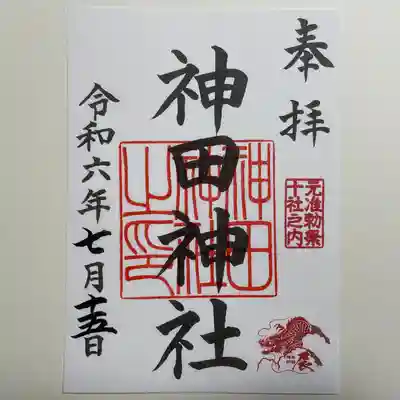 奉拝
元准勅祭
十社之内
辰
神田神社
神田
神社
之印
令和六年七月十五日